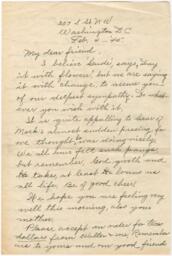 207 S St N W
Washington D C
Feb. 2 - 45
My dear friend.
I believe Saide, says, "Say
it with flowers," but we are saying
it with change, to assure you
of our deepest sympathy. Do what
ever you wish with it.
It is quite appalling to hear of
Mark's almost sudden passing for
we thought, was doing nicely.
We all have felt such pangs,
but remember God giveth and
He takes, at least He loans us
all life. Be of good cheer!
We hope you are feeling very
well this morning, also your
mother.
Please accept an order for
dollars from Walter & me. Remember
me to yours and our good friends